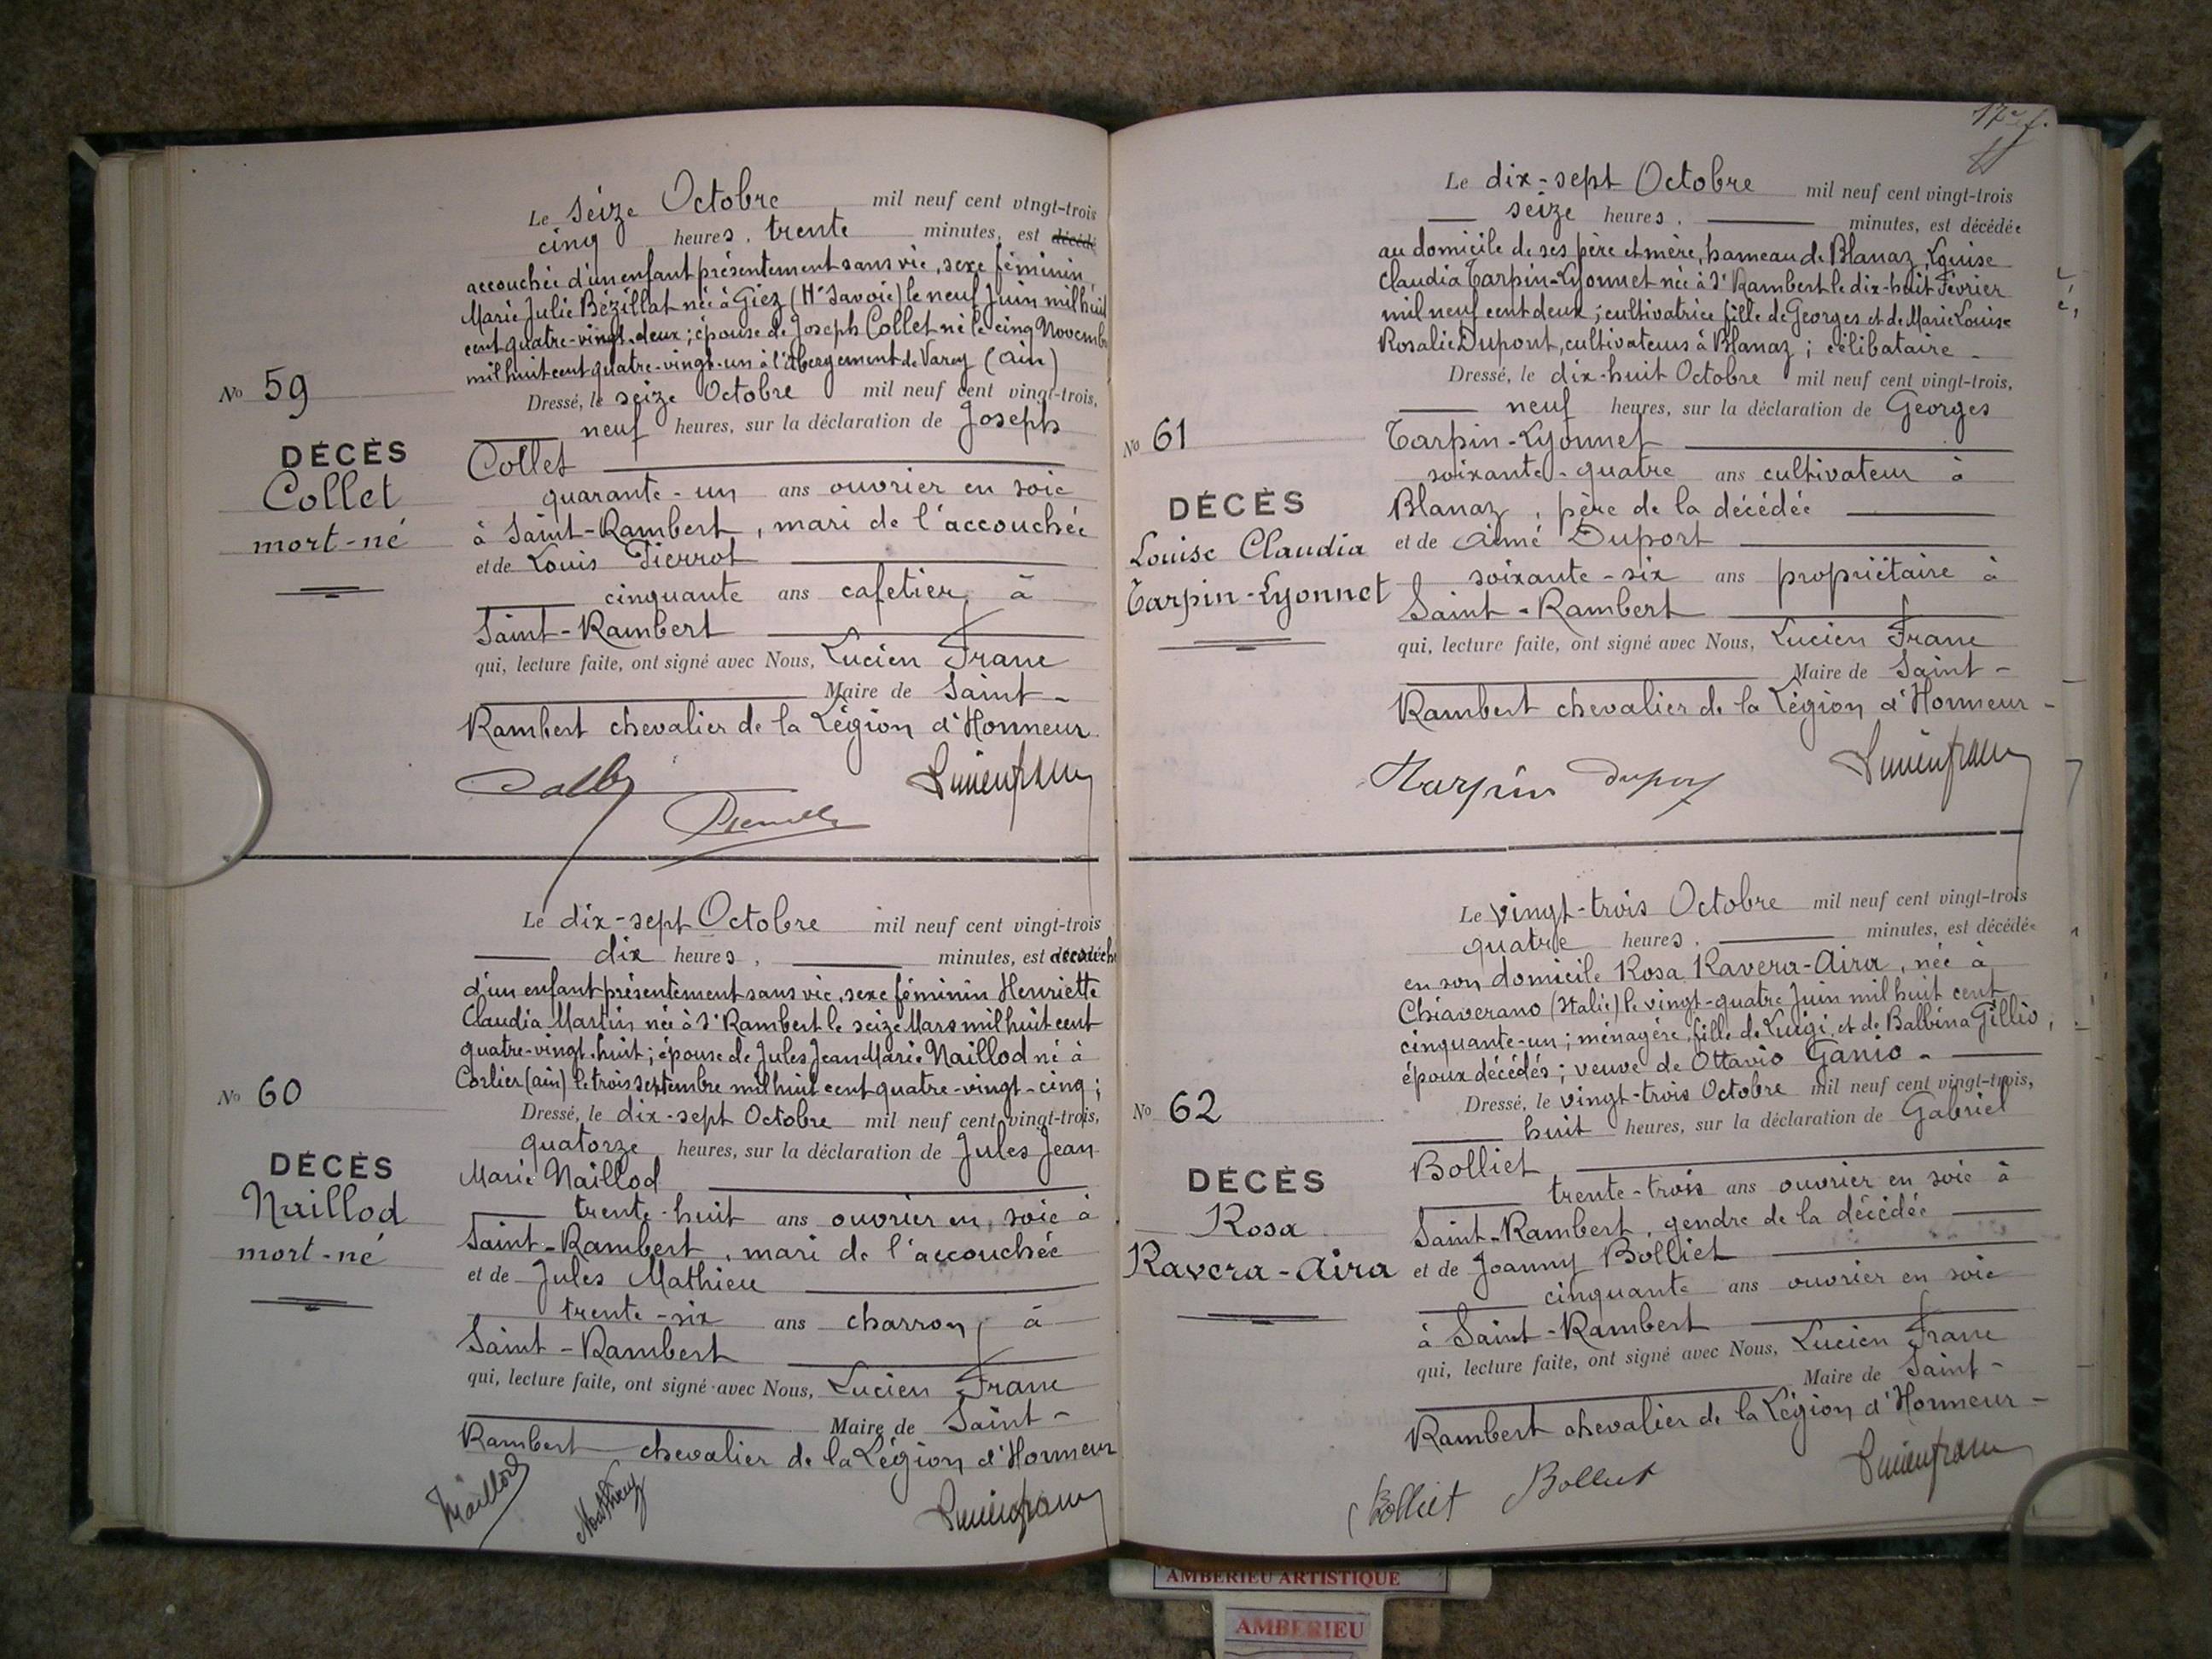 Le seize Octobre mil neuf cent vingt-trois
cinq heures, trente minutes, est décédé
accouchée d'un enfant présentement sans vie, sexe féminin
Marie Julie Bézillat née à Giez (Hte Savoie) le neuf Juin mil huit
cent quatre-vingt-deux; épouse de Joseph Collet né le cinq Novembre
mil huit cent quatre-vingt-un à l'Abergement de Varey (Ain)
Dressé, le seize Octobre mil neuf cent vingt-trois,
neuf heures, sur la déclaration de Joseph
Collet
quarante-un ans ouvrier en soie
à Saint-Rambert, mari de l'accouchée
et de Louis Pierrot
cinquante ans cafetier, à
Saint-Rambert
qui, lecture faite, ont signé avec Nous, Lucien Franc
Maire de Saint-
Rambert chevalier de la Légion d'Honneur
No 59
DÉCÈS
Collet
mort-né
Le dix-sept Octobre mil neuf cent vingt-trois
dix heures, minutes, est
d'un enfant présentement sans vie, sexe féminin Henriette
Claudia Martin née à St Rambert le seize Mars mil huit cent
quatre-vingt-huit; épouse de Jules Jean Marie Naillod né à
Corlier (Ain) le trois septembre mil huit cent quatre-vingt-cinq;
Dressé, le dix-sept Octobre mil neuf cent vingt-trois,
quatorze heures, sur la déclaration de Jules Jean
Marie Naillod
trente-huit ans ouvrier en soie à
Saint-Rambert, mari de l'accouchée
et de Jules Mathieu
trente-six ans charron, à
Saint-Rambert
qui, lecture faite, ont signé avec Nous, Lucien Franc
Maire de Saint-
Rambert chevalier de la Légion d'Honneur
Naillod Mathieu
No 60
DÉCÈS
Naillod
mort-né
17e f.
Le dix-sept Octobre mil neuf cent vingt-trois
seize heures, minutes, est décédée
au domicile de ses père et mère, hameau de Blanaz, Louise
Claudia Tarpin-Lyonnet née à St Rambert le dix-huit Février
mil neuf cent deux; cultivatrice fille de Georges et de Marie Louise
Rosalie Dupont, cultivateurs à Blanaz; célibataire -
Dressé, le dix-huit Octobre mil neuf cent vingt-trois,
neuf heures, sur la déclaration de Georges
Tarpin-Lyonnet
soixante-quatre ans cultivateur à
Blanaz, père de la décédée
et de Aimé Duport
soixante-six ans propriétaire à
Saint-Rambert
qui, lecture faite, ont signé avec Nous, Lucien Franc
Maire de Saint-
Rambert chevalier de la Légion d'Honneur -
Tarpin Duport
No 61
DÉCÈS
Louise Claudia
Tarpin-Lyonnet
Le vingt-trois Octobre mil neuf cent vingt-trois
quatre heures, minutes, est décédée
en son domicile Rosa Ravera-Aira, née à
Chiaverano (Italie) le vingt-quatre Juin mil huit cent
cinquante-un; ménagère, fille de Luigi et de Balbina Gillio,
époux décédés; veuve de Ottavio Ganio -
Dressé, le vingt-trois Octobre mil neuf cent vingt-trois,
huit heures, sur la déclaration de Gabriel
Bolliet
trente-trois ans ouvrier en soie à
Saint-Rambert, gendre de la décédée
et de Joanny Bolliet
cinquante ans ouvrier en soie
à Saint-Rambert
qui, lecture faite, ont signé avec Nous, Lucien Franc
Maire de Saint-
Rambert chevalier de la Légion d'Honneur -
Bolliet Bolliet
No 62
DÉCÈS
Rosa
Ravera-Aira
AMBERIEU ARTISTIQUE
AMBERIEU